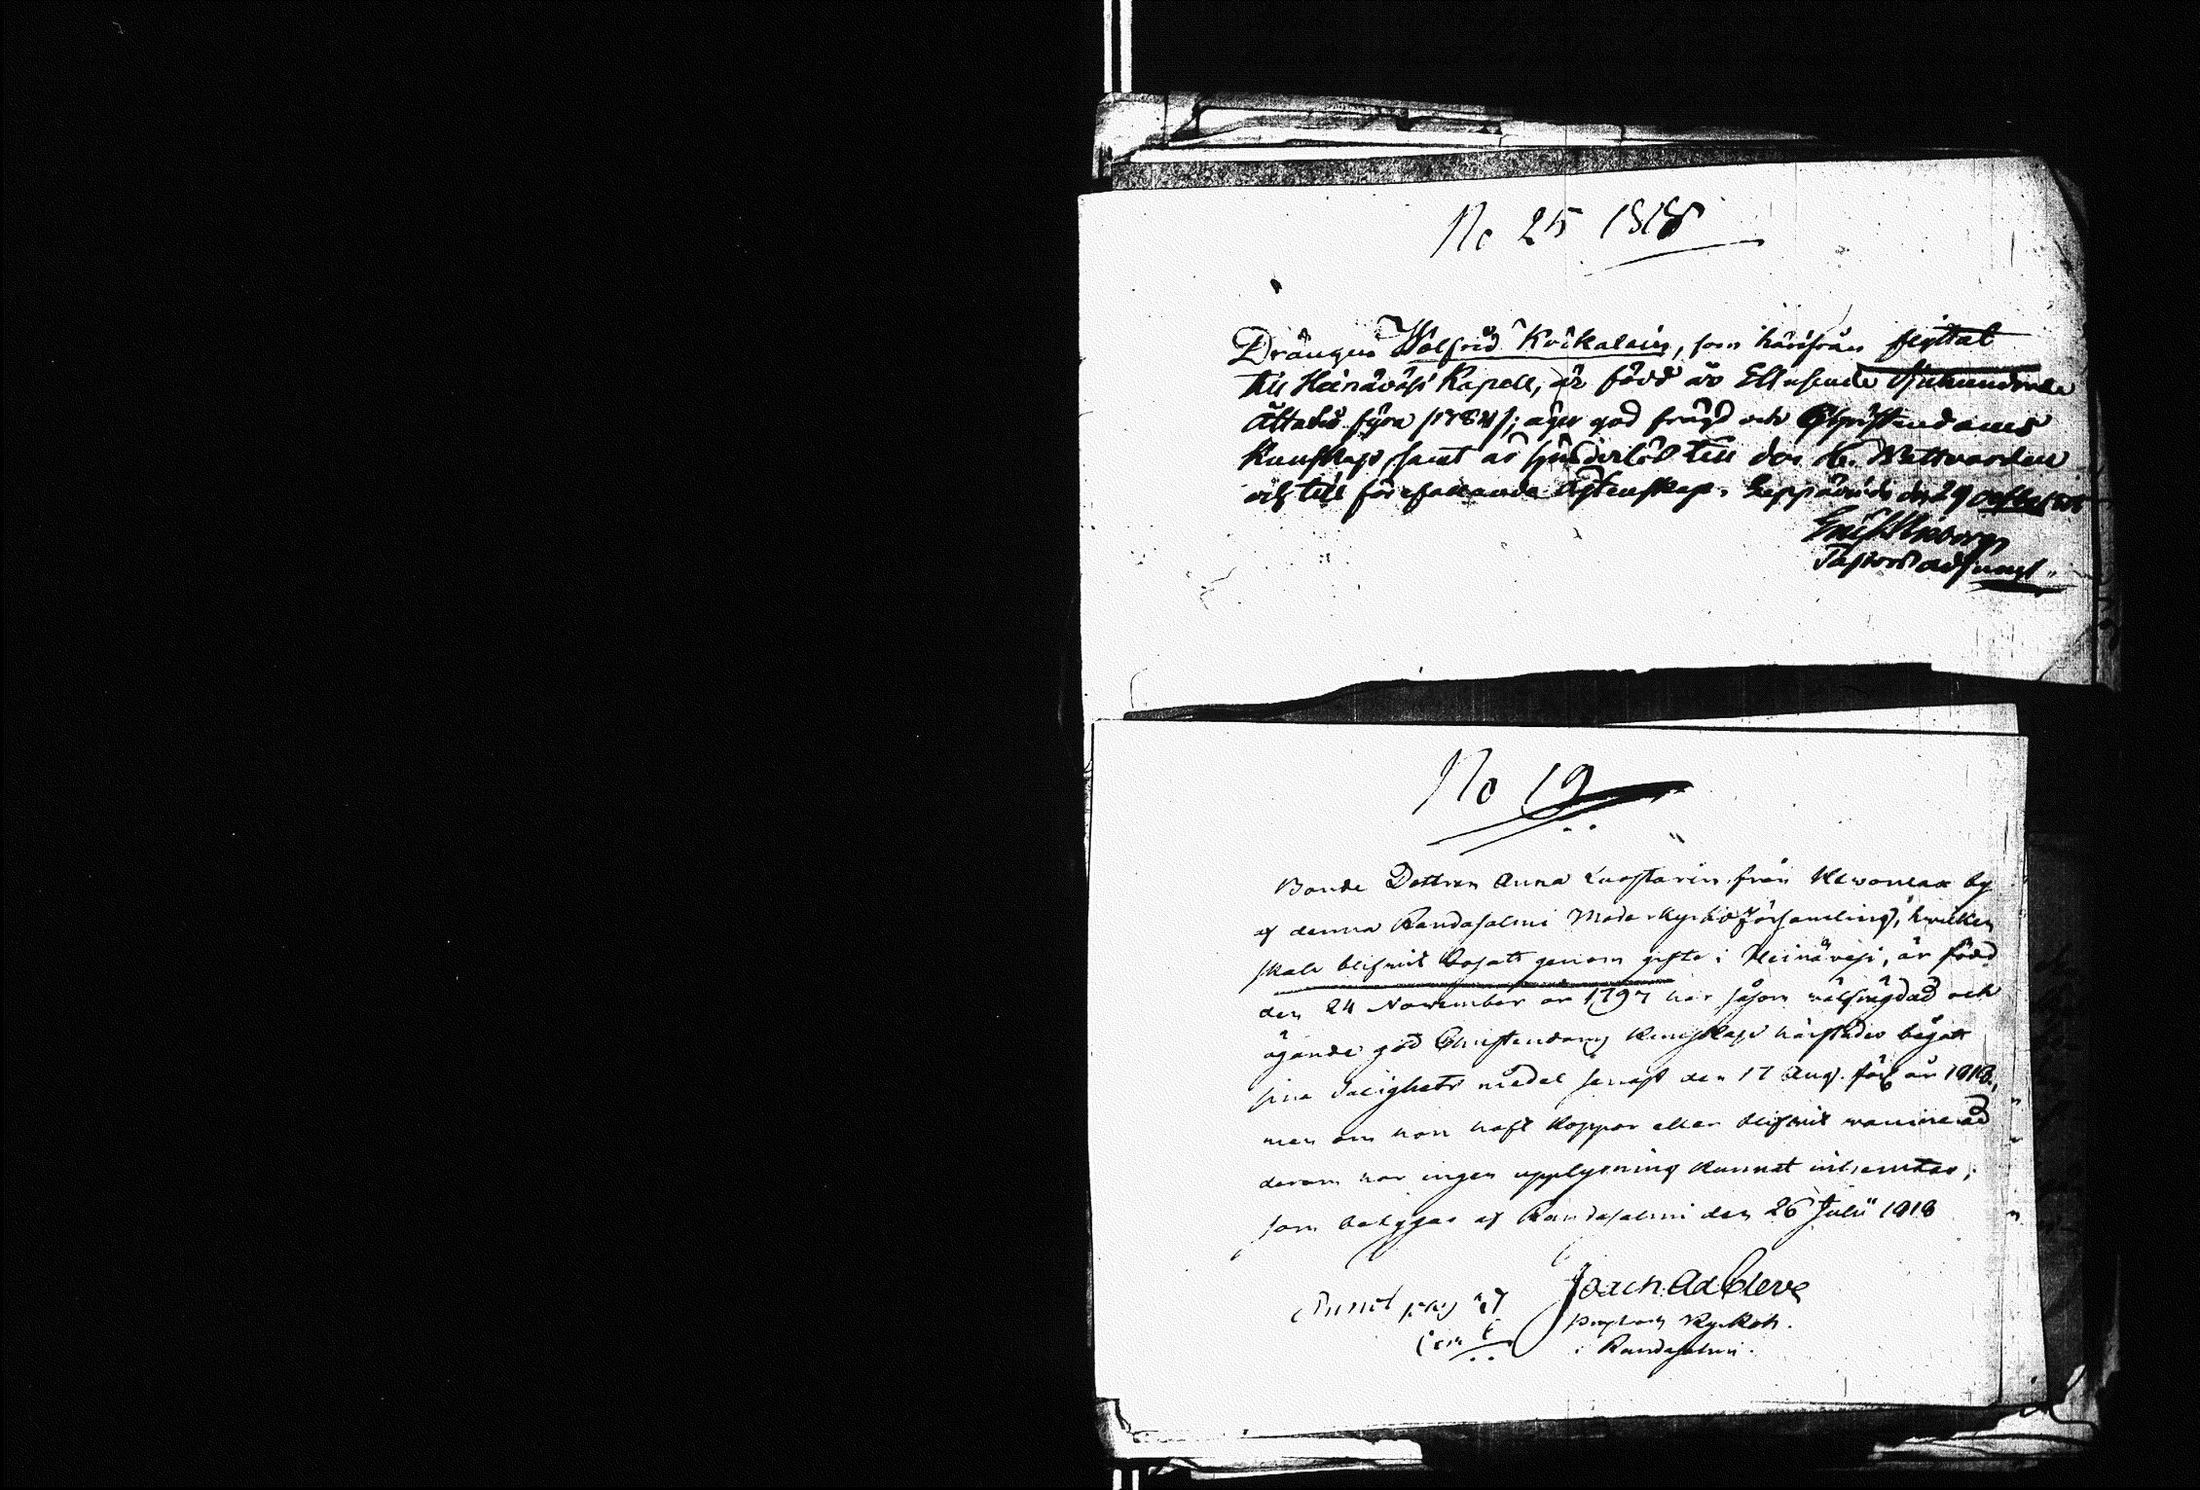 No 25 1818
Drängen Wolfrid Krökalain, som härifrån flyttat
till Heinäväsi Kapell, är född år Ettusende Sjuhundrade
Åttatio fyra /1784/; äger god frägd och Christendoms
Kunskap, samt är hinderlös till den H. Nattvarden
och till förefallande Ägtenskap. Leppävirda den 29 1818
Pastors adjunct.
No 19
Bonde Dottren Anna Luostarin från by
af denna Randasalmi Moderkyrko Församling, hvilken
skall blifwit bosatt genom gifte i Heinävesi, är född
den 24 November år 1797 har såsom wälfrägdad och
ägande god Christendoms Kunskap härstädes begått
sina Salighets medel senast den 17 Aug. förl. år 1818,
men om hon haft Koppor eller blifwit vaccinerad
derom har ingen upplysning kunnat inhemtas;
som betygas af Randasalmi den 26 Julii 1818
Joach. Ad. Cleve
Kyrkoh.
i Randasalmi.